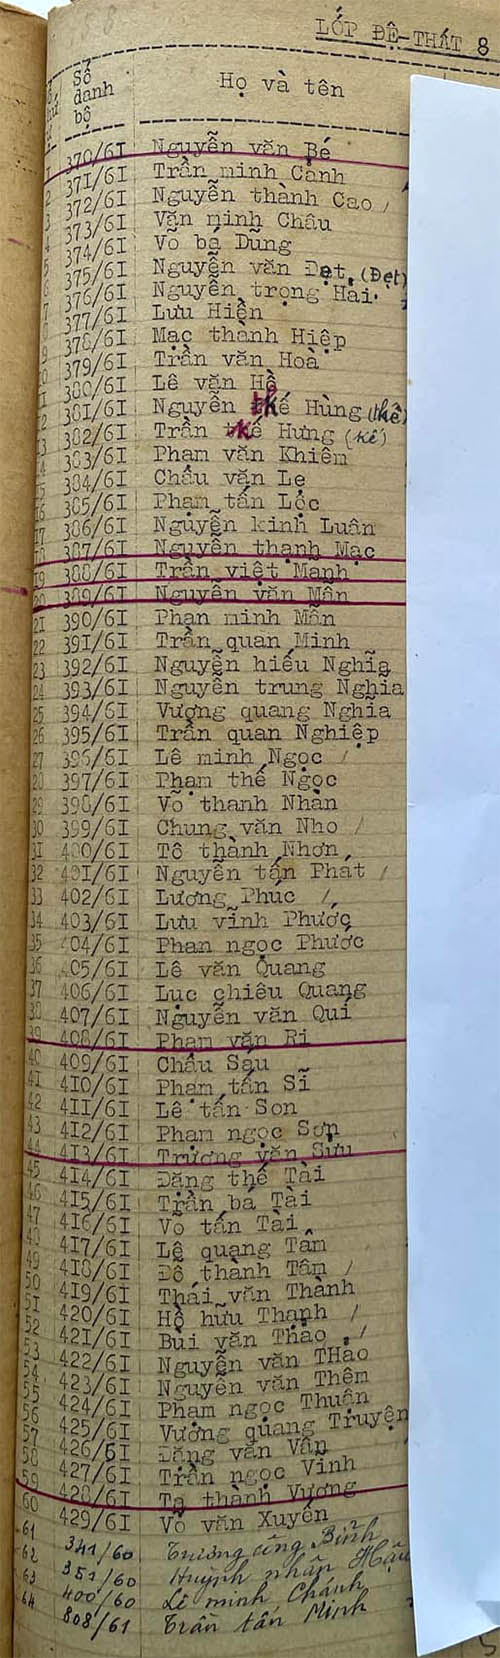 LỚP ĐỆ-THẤT 8
Số danh bộ Họ và tên
1 370/61 Nguyễn văn Bé
2 371/61 Trần minh Cảnh
3 372/61 Nguyễn thành Cao /
4 373/61 Văn minh Châu
5 374/61 Võ bá Dũng
6 375/61 Nguyễn văn Đẹt. (Đẹt)
7 376/61 Nguyễn trọng Hải
8 377/61 Lưu Hiền
9 378/61 Mạc thành Hiệp
10 379/61 Trần văn Hoà
11 380/61 Lê văn Hồ
12 381/61 Nguyễn kế Hùng (kế)
13 382/61 Trần kế Hưng (kế)
14 383/61 Phạm văn Khiêm
15 384/61 Châu văn Lẹ
16 385/61 Phạm tấn Lộc
17 386/61 Nguyễn kinh Luân
18 387/61 Nguyễn thạnh Mạc
19 388/61 Trần việt Mạnh
20 389/61 Nguyễn văn Mân
21 390/61 Phan minh Mẫn
22 391/61 Trần quan Minh
23 392/61 Nguyễn hiếu Nghĩa
24 393/61 Nguyễn trung Nghĩa
25 394/61 Vương quang Nghĩa
26 395/61 Trần quan Nghiệp
27 396/61 Lê minh Ngọc /
28 397/61 Phạm thế Ngọc
29 398/61 Võ thanh Nhàn
30 399/61 Chung văn Nho /
31 400/61 Tô thành Nhơn
32 401/61 Nguyễn tấn Phát /
33 402/61 Lương Phúc /
34 403/61 Lưu vĩnh Phước
35 404/61 Phan ngọc Phước
36 405/61 Lê văn Quang
37 406/61 Lục chiêu Quang
38 407/61 Nguyễn văn Quí
39 408/61 Phạm văn Ri
40 409/61 Châu Sáu
41 410/61 Phạm tấn Sĩ
42 411/61 Lê tấn Son
43 412/61 Phạm ngọc Sơn
44 413/61 Trương văn Sửu
45 414/61 Đặng thế Tài
46 415/61 Trần bá Tài
47 416/61 Võ tấn Tài
48 417/61 Lê quang Tâm
49 418/61 Đỗ thành Tâm /
50 419/61 Thái văn Thành
51 420/61 Hồ hữu Thạnh /
52 421/61 Bùi văn Thảo /
53 422/61 Nguyễn văn THảo
54 423/61 Nguyễn văn Thêm
55 424/61 Phạm ngọc Thuận
56 425/61 Vương quang Truyện
57 426/61 Đặng văn Vân
58 427/61 Trần ngọc Vinh
59 428/61 Tạ thành Vương
60 429/61 Võ văn Xuyến
61 341/60 Trương công Bình
62 351/60 Huỳnh nhân Hậu
63 400/60 Lê minh Chánh
64 808/61 Trần tấn Minh